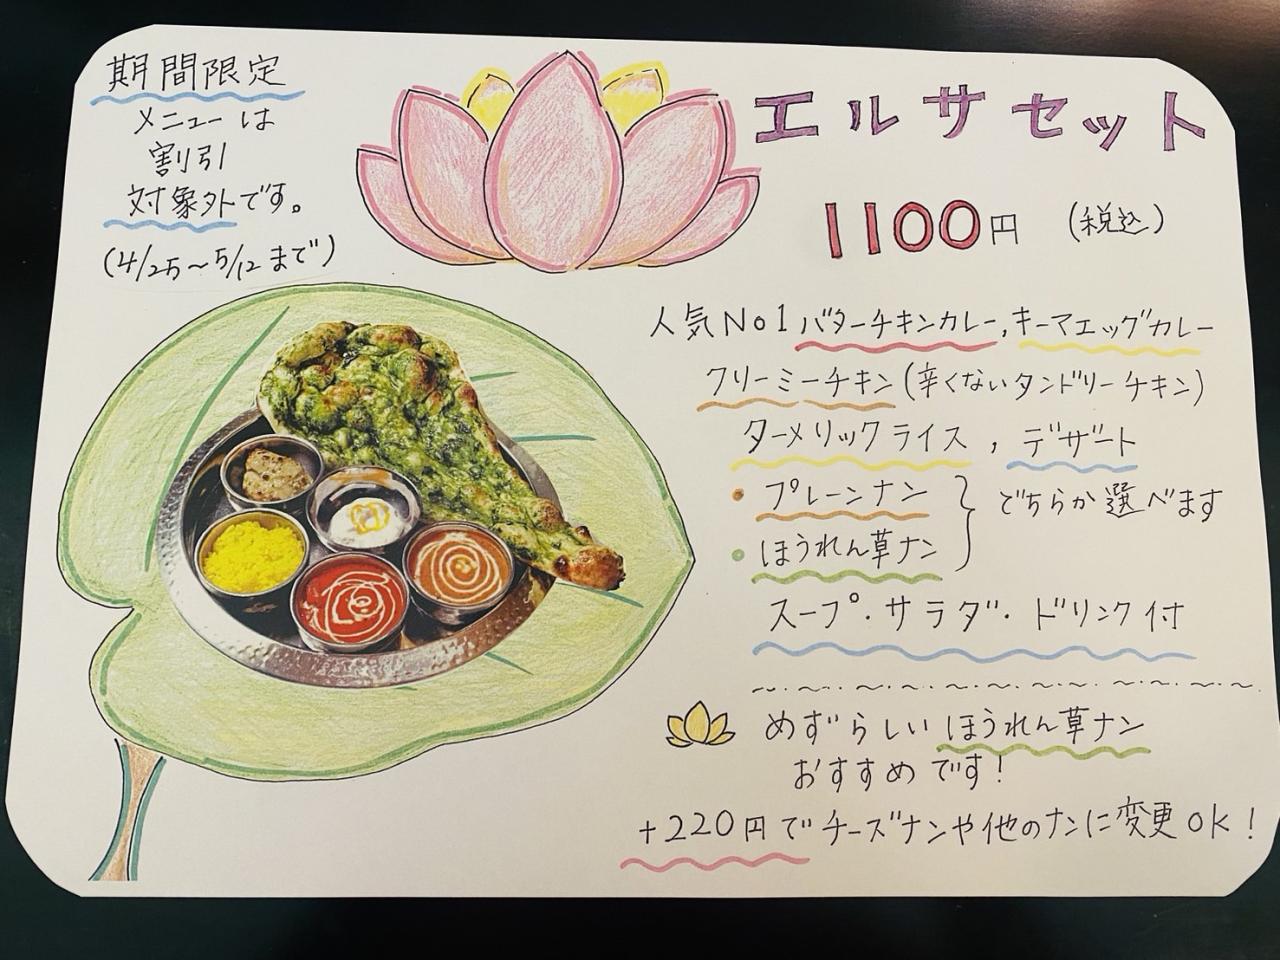 期間限定
メニューは
割引
対象外です。
(4/25〜5/12まで)
エルサセット
1100円 (税込)
人気No1バターチキンカレー,キーマエッグカレー
クリーミーチキン(辛くないタンドリーチキン)
ターメリックライス,デザート
・プレーンナン
・ほうれん草ナン
}どちらか選べます
スープ・サラダ・ドリンク付
めずらしいほうれん草ナン
おすすめです!
+220円でチーズナンや他のナンに変更OK!